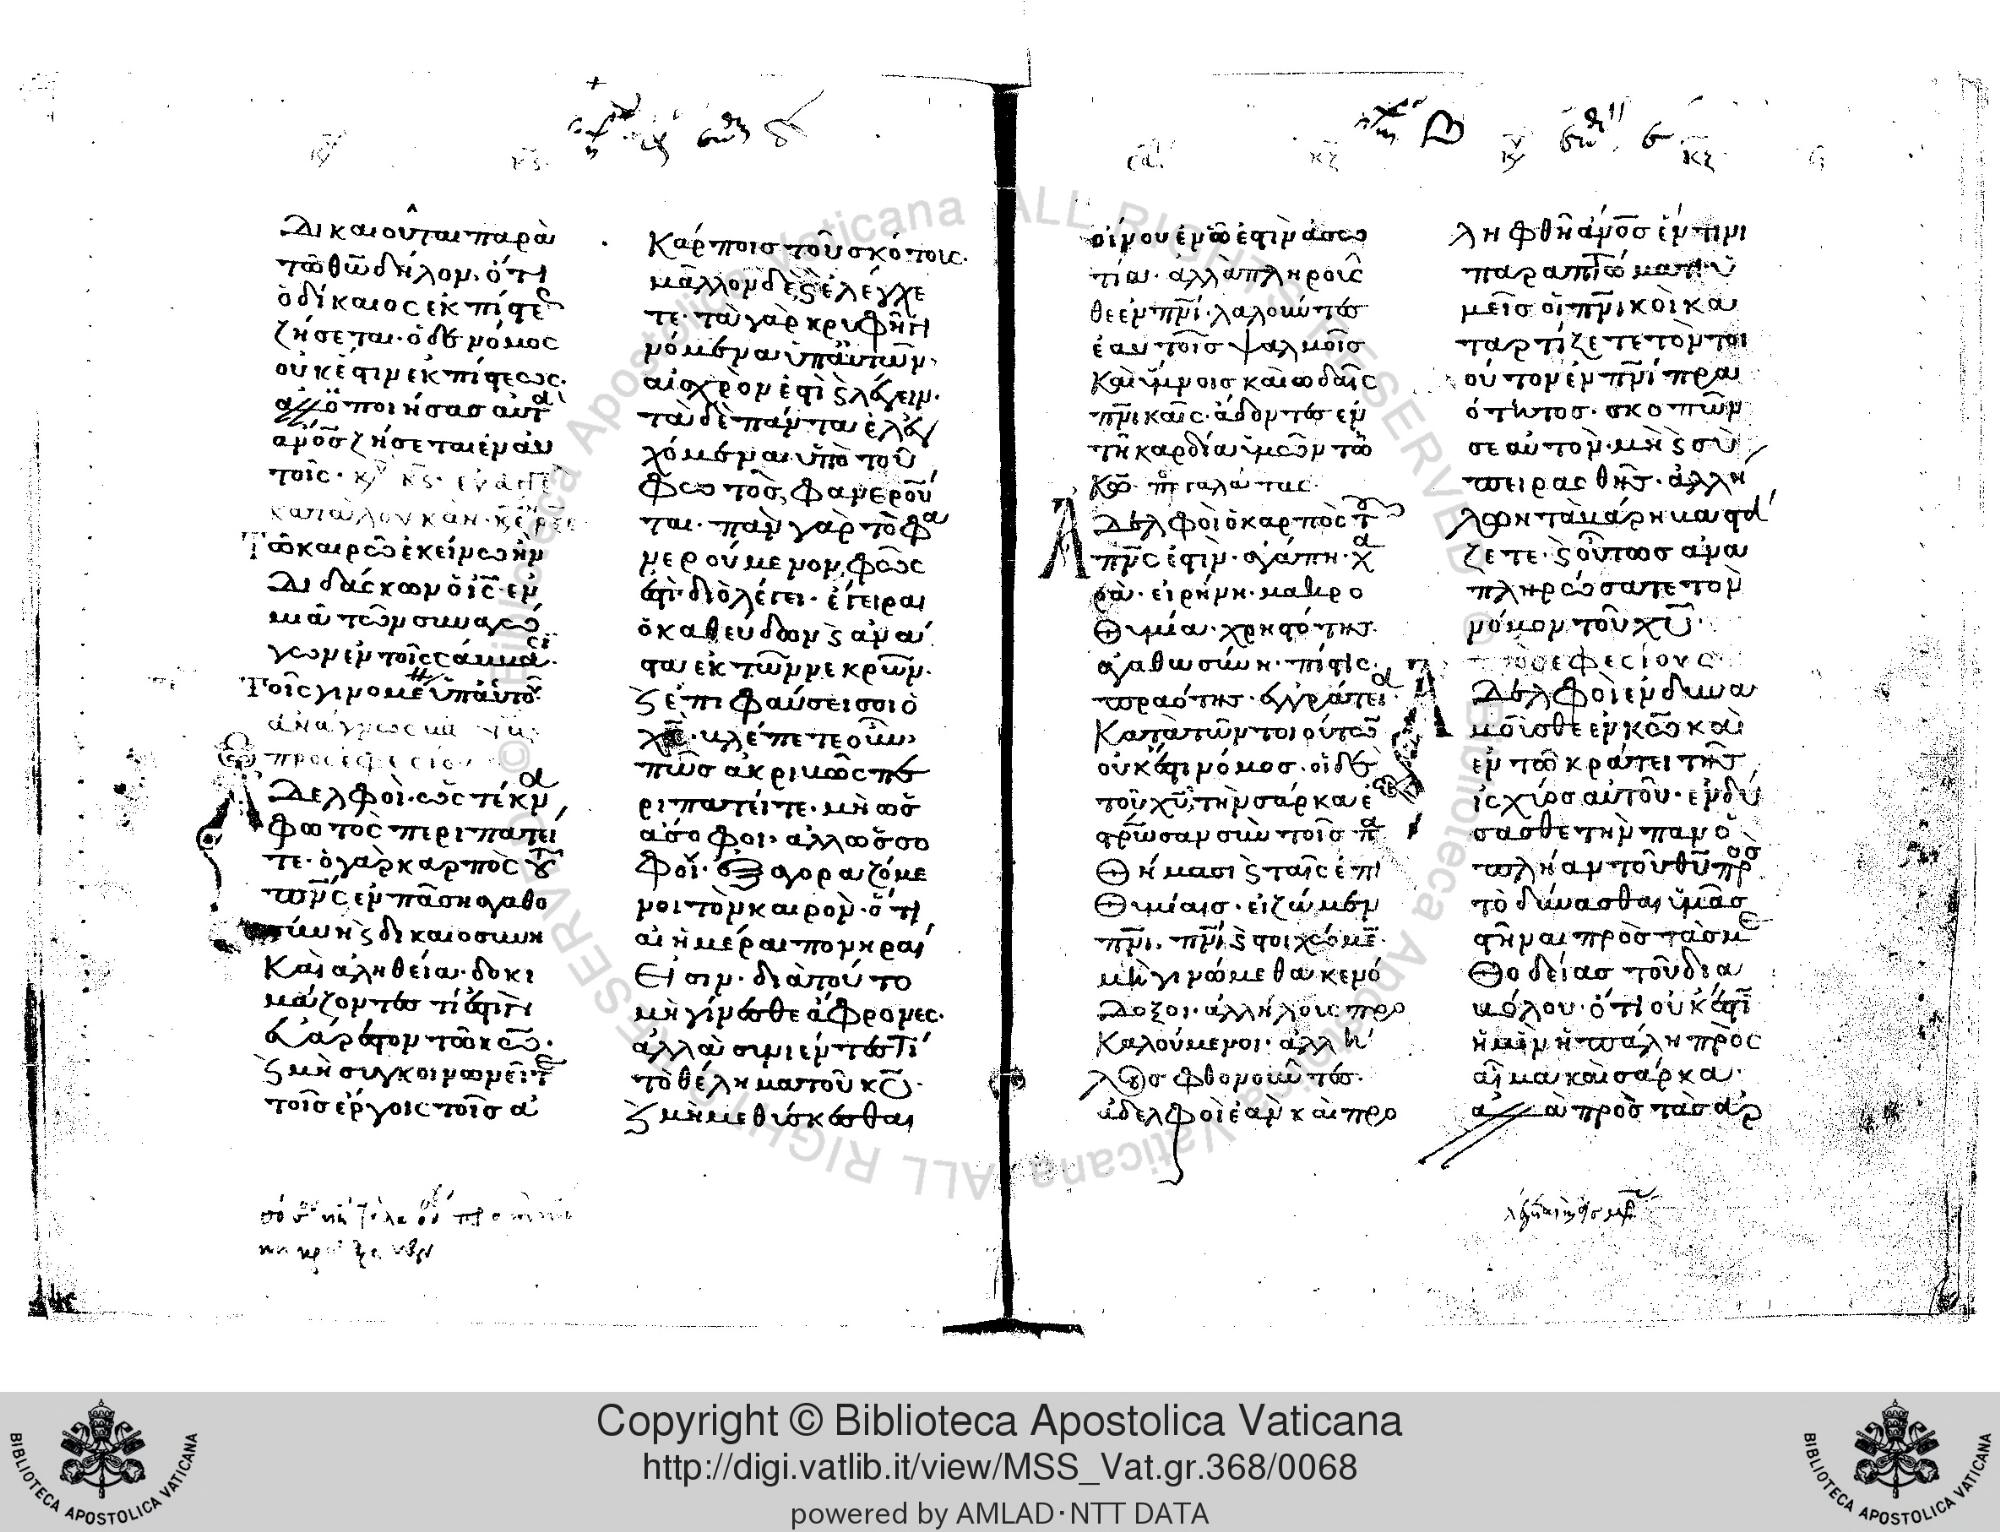 Δικαιοῦται παρὰ
τῶ θῶ δῆλον· ὅτι
ὁ δίκαιος ἐκ πίστε
ζήσεται· ὁ δὲ νόμος
οὐκ ἔστιν ἐκ πίστεως·
ἀλλ ὁ ποιήσας αὐτα
ἀνος ζήσεται ἐν αυ
τοῖς·
Τῶ καιρῶ ἐκείνω ἦν
Διδάσκων ὁ ις· ἐν
μιᾶ τῶν συναγω
γων ἐν τοῖς σάββασι·
προς ἐφεσίους
Αδελφοὶ· ὡς τέκν
φωτὸς περιπατεῖ
τε· ὁ γὰρ καρπὸς τοῦ
πνς ἐν πάση αγαθο
σύνη ϗ δικαιοσύνη
Καὶ αληθεία· δοκι
μάζοντες τί ἐστιν
εὐάρεστον τῶ κω·
ϗ μὴ συγκοινωνεῖτε
τοῖς ἔργοις τοῖς ἀ
Κάρποις τοῦ σκότους·
μᾶλλον δὲ ϗ ἐλέγχε
τε· τὰ γὰρ κρυφῆ γι
νόμενα ὑπ αὐτῶν·
αἰσχρὸν ἐστὶ ϗ λέγειν·
τὰ δὲ πάντα ἐλεγ
χόμενα ὑπὸ τοῦ
φωτὸς, φανεροῦ
ται· πᾶν γὰρ τὸ φα
νερούμενον, φῶς
ἐστι· διὸ λέγει· ἔγειραι
ὁ καθεύδων ϗ ἀνά
στα ἐκ τῶν νεκρῶν·
ϗ ἐπιφαύσει σοι ὁ
χς· βλέπετε οὖν
πῶς ἀκριβῶς πε
ριπατεῖτε· μὴ ὡς
ἄσοφοι· ἀλλ ὡς σο
φοί· ἐξαγοραζόμε
νοι τὸν καιρὸν· ὅτι
αἱ ἡμέραι πονηραί
Εἰσιν· διὰ τοῦτο
μὴ γίνεσθε ἄφρονες·
ἀλλὰ συνιέντες τί
τὸ θέλημα τοῦ κυ·
ϗ μὴ μεθύσκεσθαι
οἴνου ἐν ὧ ἐστὶν ἀσω
τία· ἀλλὰ πληροῦσ
θε ἐν πνι· λαλοῦντες
ἑαυτοῖς ψαλμοῖς
Καὶ ὕμνοις καὶ ὠδαῖς
πνικαῖς· ἄδοντες ἐν
τῆ καρδία ὑμῶν τῶ
κω·
Αδελφοὶ ὁ καρπὸς τοῦ
πνς ἐστὶν· ἀγάπη· χα
ρὰ· εἰρήνη· μακρο
Θυμία· χρηστότης·
ἀγαθωσύνη· πίστις·
πραότης· ἐγκράτεια
Κατὰ τῶν τοιούτω
οὐκ ἔστι νόμος· οἱ δὲ
τοῦ χυ, τὴν σάρκα ἐ
σταύρωσαν σὺν τοῖς πα
Θήμασι ϗ ταῖς ἐπι
Θυμίαις· εἰ ζῶμεν
πνι, πνι ϗ στοιχῶμεν·
μὴ γινώμεθα κενό
Δοξοι· ἀλλήλους προ
Καλούμενοι· ἀλλή
λους φθονοῦντες·
ἀδελφοὶ ἐὰν καὶ προ
ληφθῆ ἀνος ἔν τινι
παραπτώματι ὑ
μεῖς οἱ πνικοὶ κα
ταρτίζετε τὸν τοι
οῦτον ἐν πνι πρα
ότητος· σκοπῶν
σεαυτὸν· μὴ ϗ σὺ
πειρασθῆς· ἀλλή
λων τὰ βάρη βαστά
ζετε· ϗ οὕτως ἀνα
πληρώσατε τὸν
νόμον τοῦ χυ·
πρὸς ἐφεσίους·
Αδελφοὶ ἐνδυνα
μοῦσθε ἐν κω καὶ
ἐν τῶ κράτει τῆς
ἰσχύος αὐτοῦ· ἐνδύ
σασθε τὴν πανο
πλίαν τοῦ θυ πρὸς
τὸ δύνασθαι ὑμᾶς
στῆναι πρὸς τὰς με
Θοδείας τοῦ δια
βόλου· ὅτι οὐκ ἔστι
ἡμῖν ἡ πάλη πρὸς
αἷμα καὶ σάρκα·
ἀλλὰ πρὸς τὰς ἀρ
Copyright © Biblioteca Apostolica Vaticana
http://digi.vatlib.it/view/MSS_Vat.gr.368/0068
powered by AMLAD·NTT DATA
BIBLIOTECA APOSTOLICA VATICANA
BIBLIOTECA APOSTOLICA VATICANA